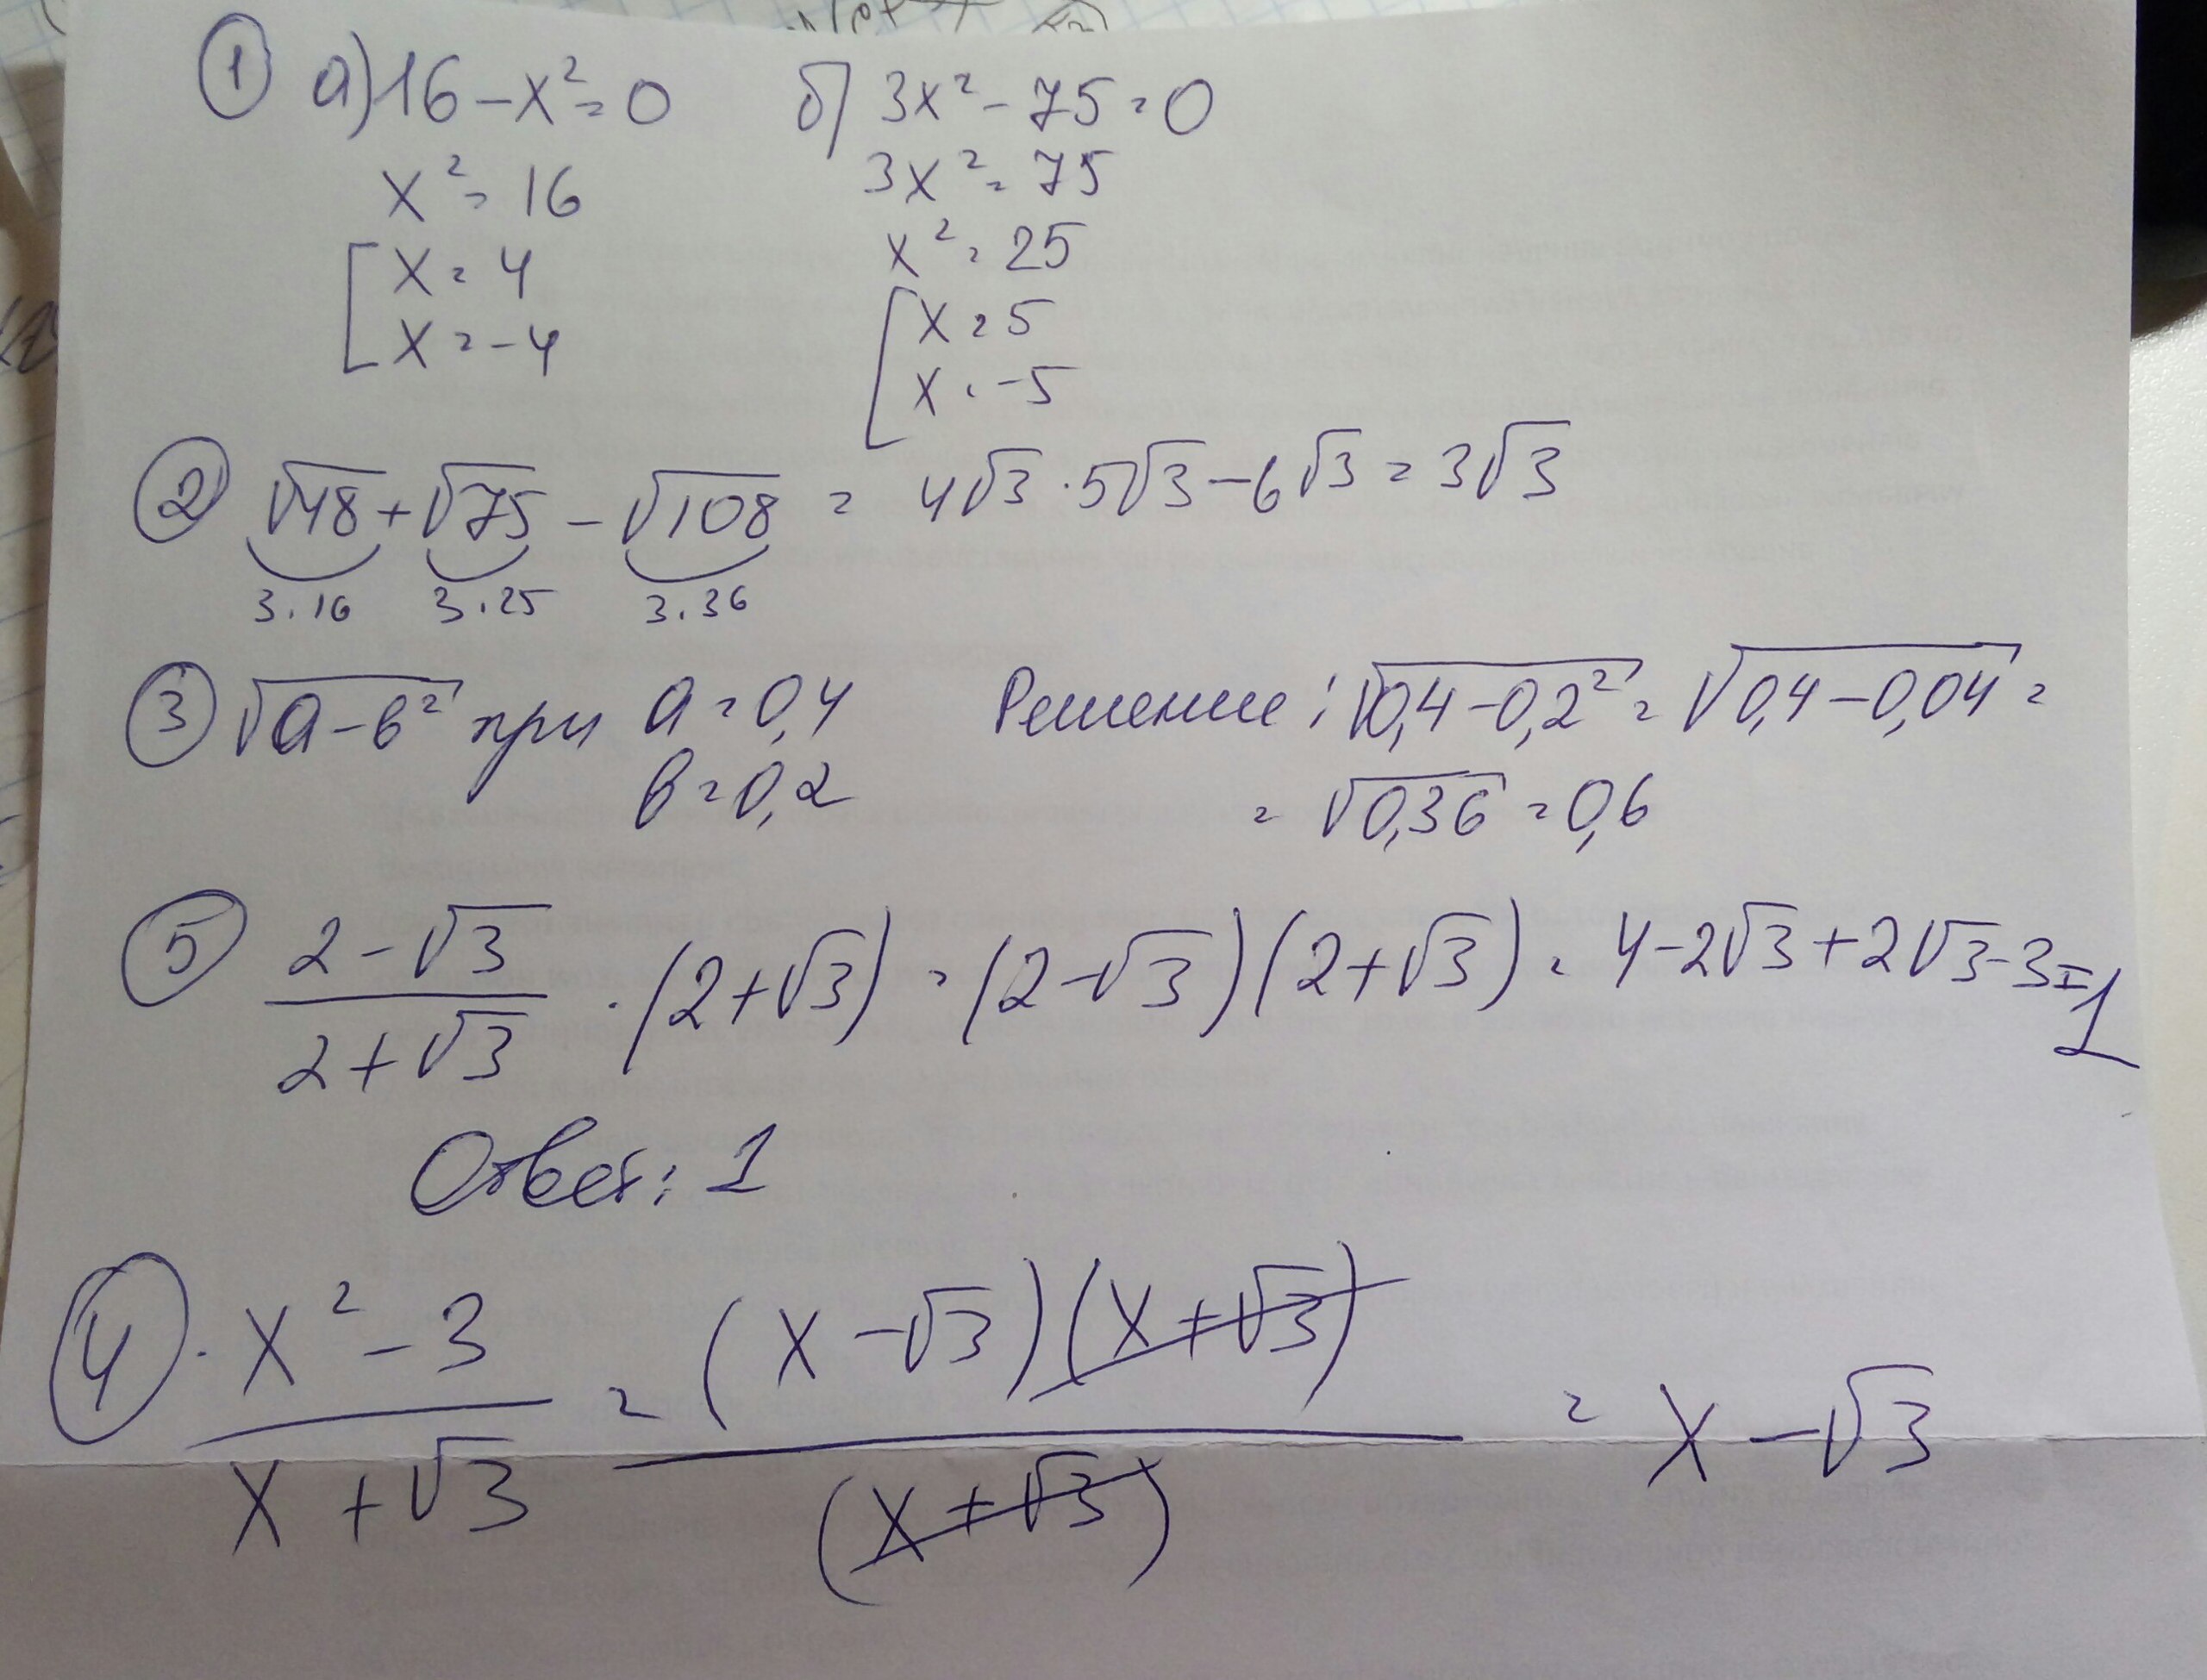 ① а) 16 - x² = 0
x² = 16
[ x = 4
x = -4
б) 3x² - 75 = 0
3x² = 75
x² = 25
[ x = 5
x = -5
② √48 + √75 - √108 = 4√3 · 5√3 - 6√3 = 3√3
3·16 3·25 3·36
③ √a-b² при a = 0,4 Решение: √0,4-0,2² = √0,4-0,04 =
b = 0,2 = √0,36 = 0,6
⑤ (2-√3)/(2+√3) · (2+√3) = (2-√3)(2+√3) = 4-2√3+2√3-3=1
Ответ: 1
④. (x²-3)/(x+√3) = (x-√3)(x+√3)/(x+√3) = x-√3